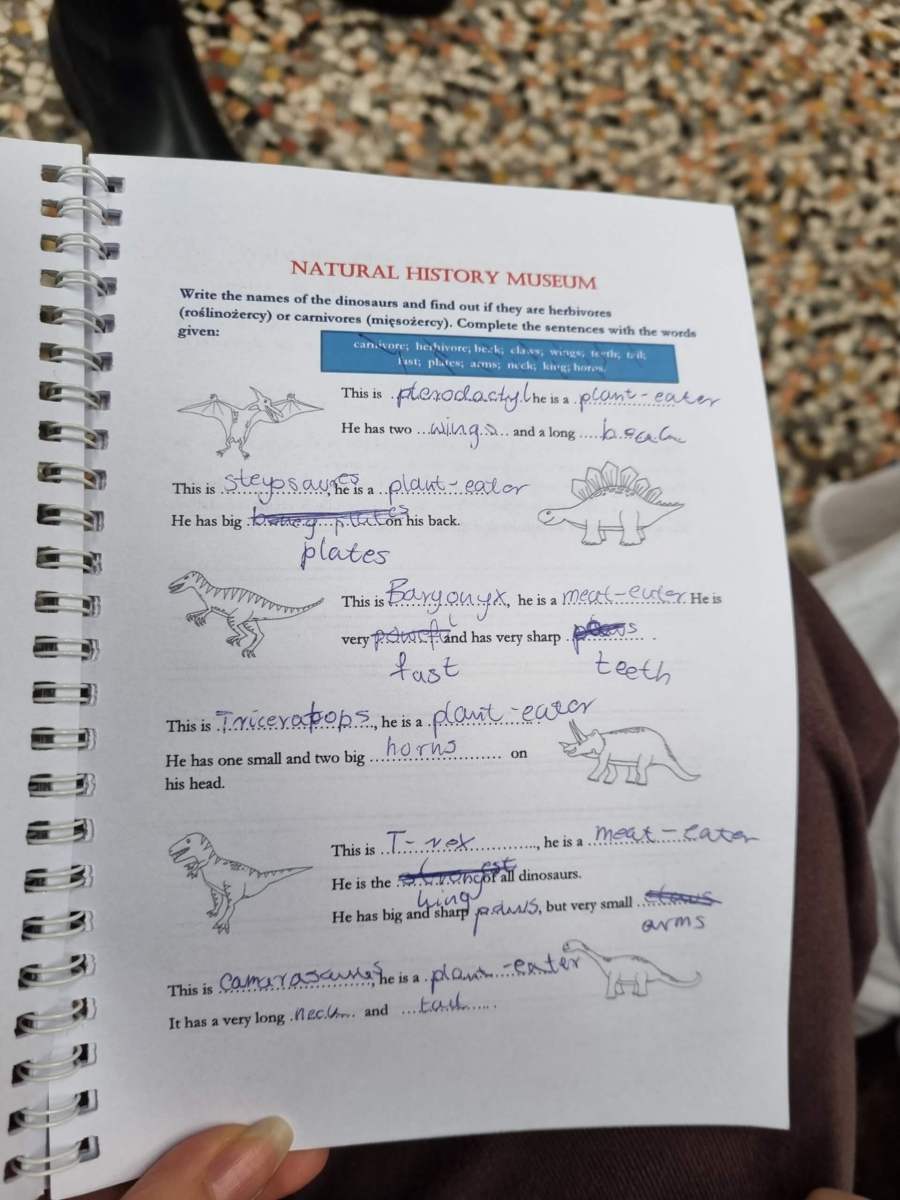 NATURAL HISTORY MUSEUM
Write the names of the dinosaurs and find out if they are herbivores
(roślinożercy) or carnivores (mięsożercy). Complete the sentences with the words
given:
carnivore; herbivore; beak; claws; wings; teeth; tail;
fast; plates; arms; neck; king; horns.
This is pterodactyl he is a plant-eater
He has two wings and a long beak
This is steypsaures, he is a plant-eater
He has big on his back.
plates
This is Baryonyx, he is a meat-eater He is
very and has very sharp .
fast teeth
This is Triceratops, he is a plant-eater
He has one small and two big horns on
his head.
This is T-rex, he is a meat-eater
He is the of all dinosaurs.
king
He has big and sharp paws, but very small
arms
This is camarasaures, he is a plant-eater
It has a very long neck and tail